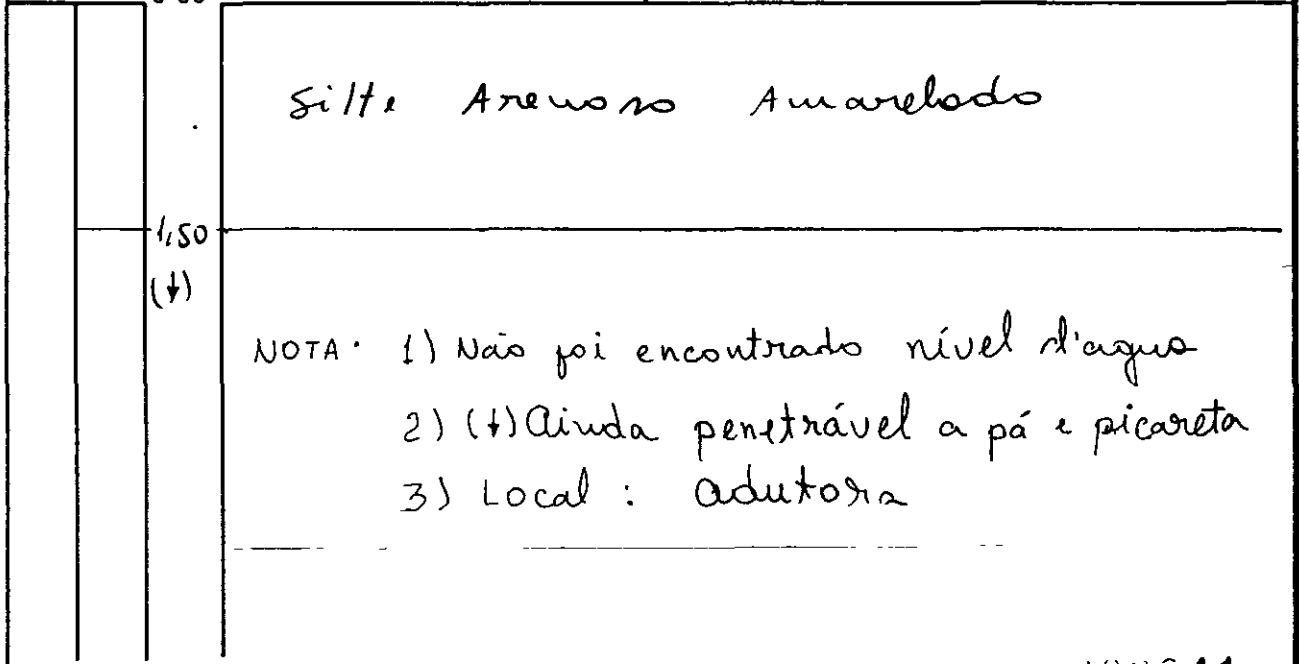 Silte Arenoso Amarelado
1,50
(↓)
NOTA: 1) Não foi encontrado nível d'agua
2) (↓) Ainda penetrável a pá e picareta
3) Local: adutora